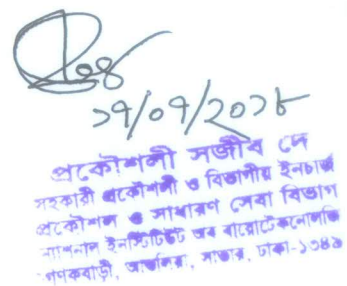 ১৭/০৭/২০১৮
প্রকৌশলী সজীব দে
সহকারী প্রকৌশলী ও বিভাগীয় ইনচার্জ
প্রকৌশল ও সাধারণ সেবা বিভাগ
ন্যাশনাল ইনস্টিটিউট অব বায়োটেকনোলজি
গণকবাড়ী, আশুলিয়া, সাভার, ঢাকা-১৩৪৯